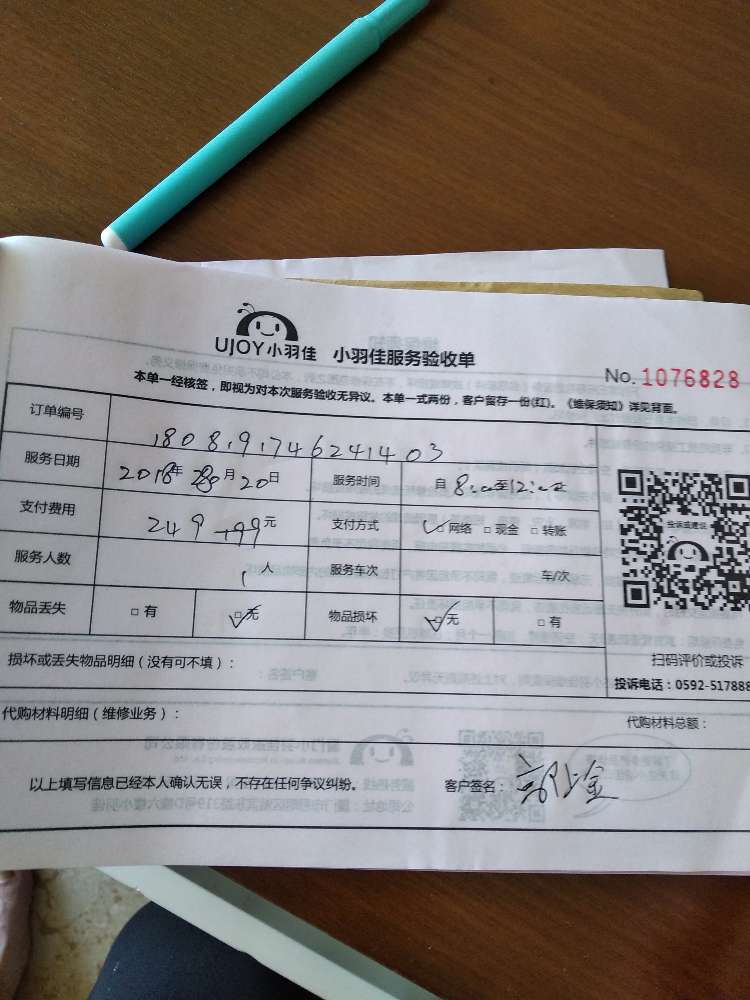 UJOY小羽佳 小羽佳服务验收单
No. 1076828
本单一经核签，即视为对本次服务验收无异议。本单一式两份，客户留存一份(红)。《维保须知》详见背面。
订单编号 1808191746241403
服务日期 2018年 8月20日 服务时间 自8:00至12:00止
支付费用 249+99元 支付方式 ✓□网络 □现金 □转账
服务人数 1人 服务车次 车/次
物品丢失 □有 ☑无 物品损坏 ☑无 □有
投诉或建议
扫码评价或投诉
投诉电话：0592-517888
损坏或丢失物品明细（没有可不填）：
代购材料明细（维修业务）： 代购材料总额：
以上填写信息已经本人确认无误，不存在任何争议纠纷。 客户签名：